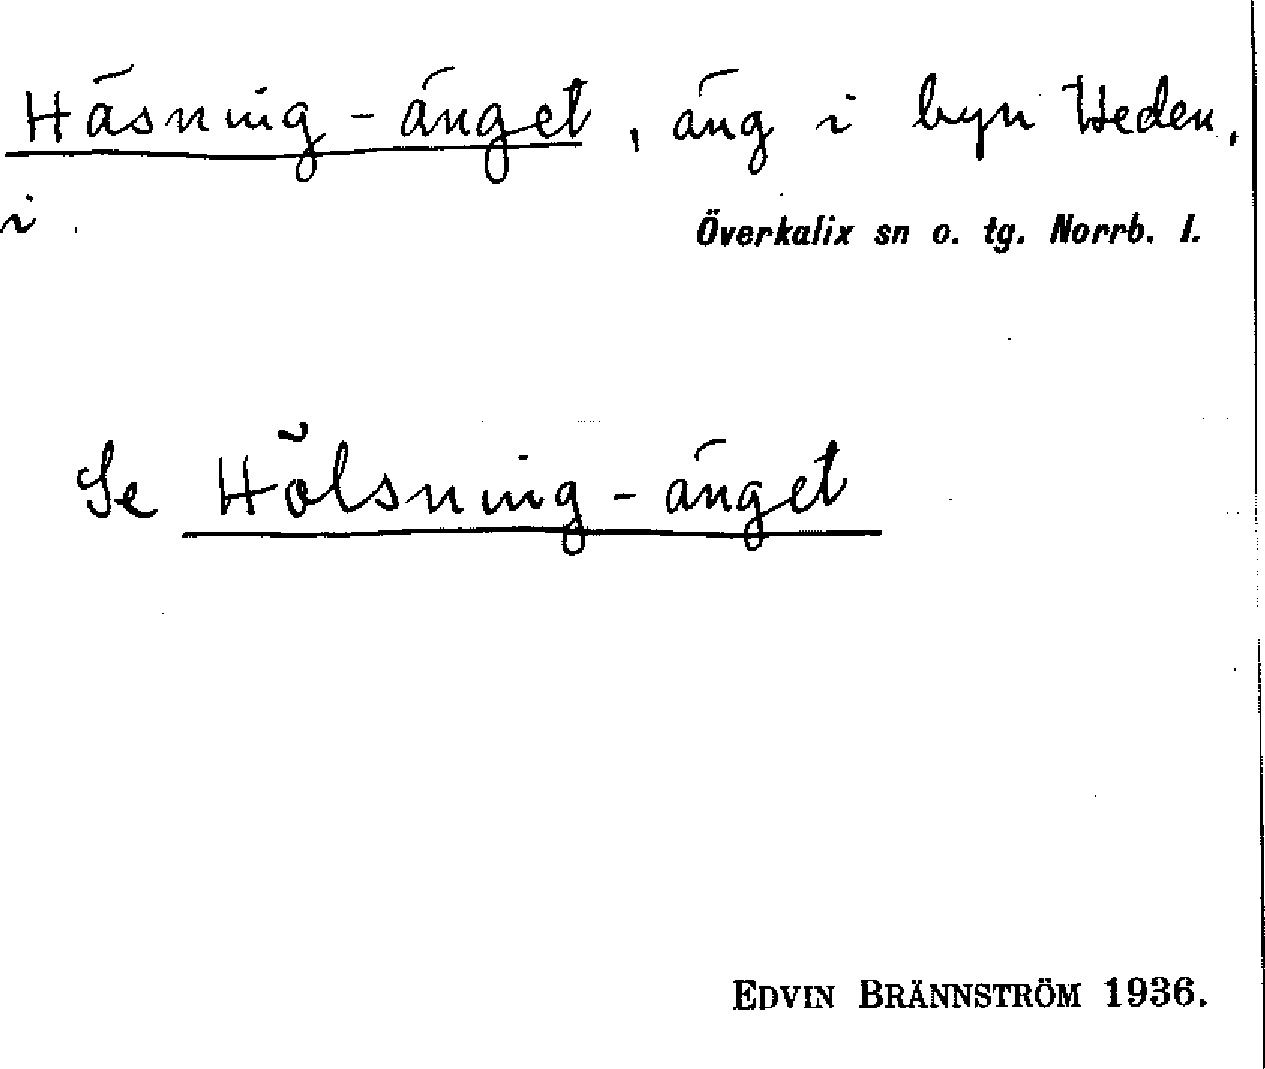 Häsning-änget, äng i byn Heden,
i
Överkalix sn o. tg. Norrb. l.
Se Hölsning-änget
EDVIN BRÄNNSTRÖM 1936.